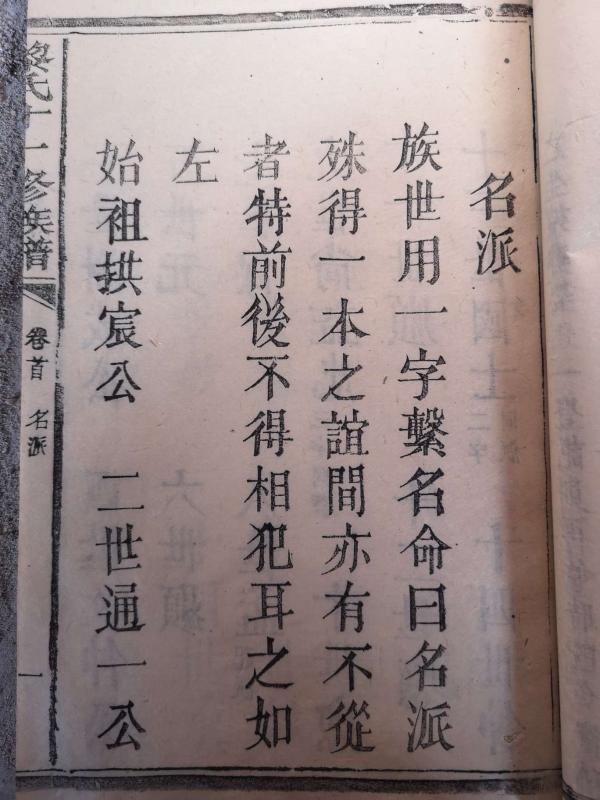 名派
族世用一字繫名命曰名派
殊得一本之誼間亦有不從
者特前後不得相犯耳之如
左
始祖拱宸公　二世通一公
黎氏十一修族譜
卷首　名派
一